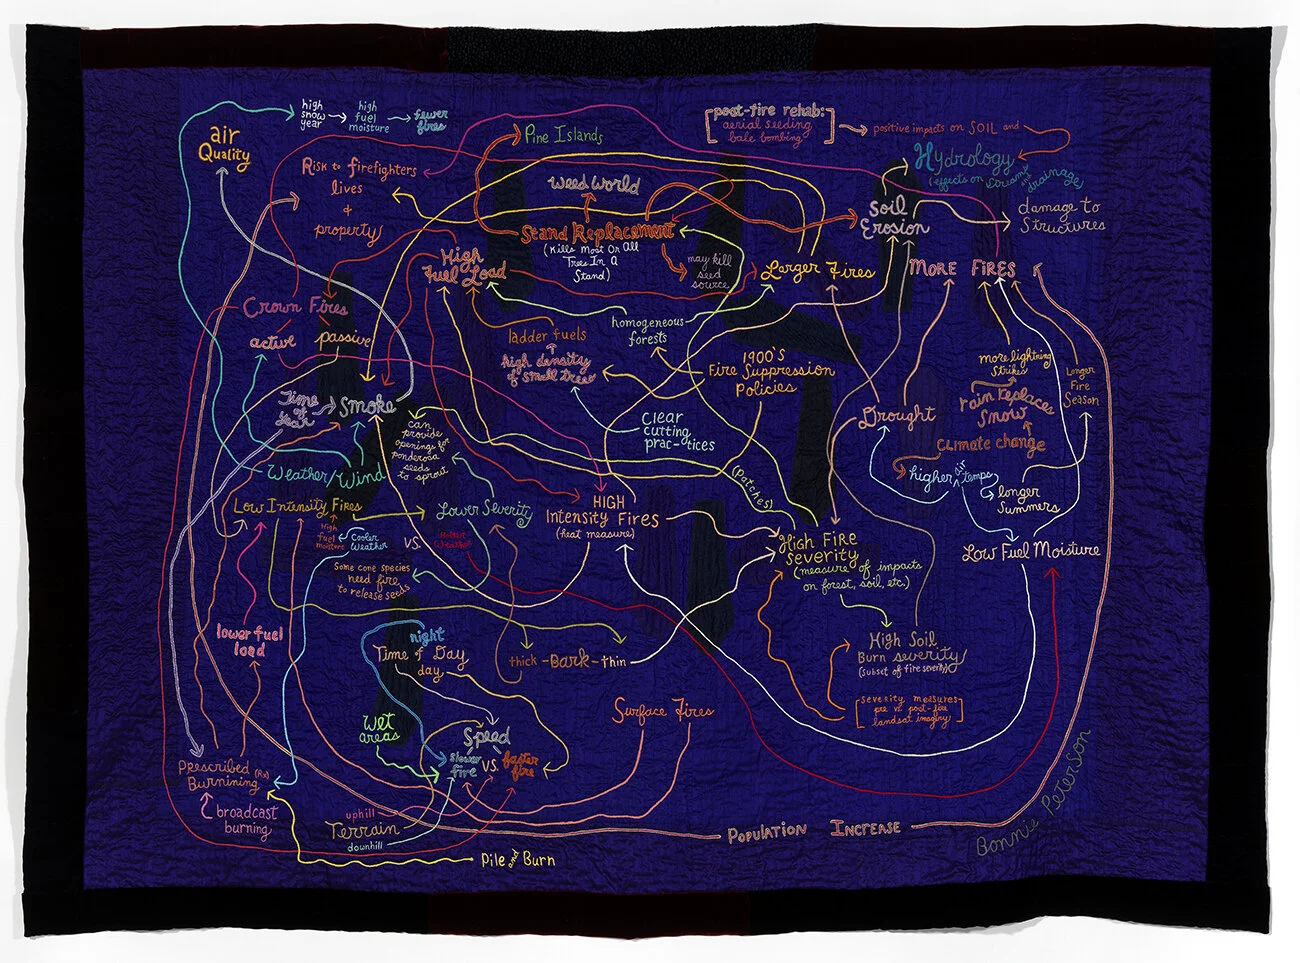 high
snow
year
high
fuel
moisture
fewer
fires
air
Quality
Risk to firefighters
lives
&
property
Pine Islands
[post-fire rehab:
aerial seeding
bale bombing]
positive impacts on SOIL and
Hydrology
(effects on streams
drainage)
Weed World
Stand Replacement
(Kills Most Or All
Trees In A
Stand)
may kill
seed
source
Soil
Erosion
damage to
Structures
High
Fuel Load
Larger Fires
MORE FIRES
Crown Fires
active
passive
ladder fuels
high density
of small trees
homogeneous
forests
1900'S
Fire Suppression
Policies
more lightning
Strikes
rain replaces
Snow
Climate change
Longer
Fire
Season
Time
of
Year
Smoke
can
provide
openings for
ponderosa
seeds
to sprout
Clear
cutting
prac-tices
Drought
higher air temps
longer
Summers
Weather/Wind
Low Intensity Fires
High
fuel
moisture
Cooler
Weather
VS.
Hotter
Weather
Lower Severity
HIGH
Intensity Fires
(heat measure)
(patches)
High Fire
Severity
(measure of impacts
on forest, soil, etc.)
Low Fuel Moisture
Some cone species
need fire
to release seeds
lower fuel
load
night
Time of Day
day
thick-Bark-thin
High Soil
Burn severity
(subset of fire severity)
[severity measures
pre vs. post-fire
landsat imagery]
Surface Fires
Wet
areas
Speed
slower
fire
VS.
faster
fire
Prescribed (Rx)
Burnining
broadcast
burning
uphill
Terrain
downhill
Pile and Burn
POPULATION INCREASE
Bonnie Peterson